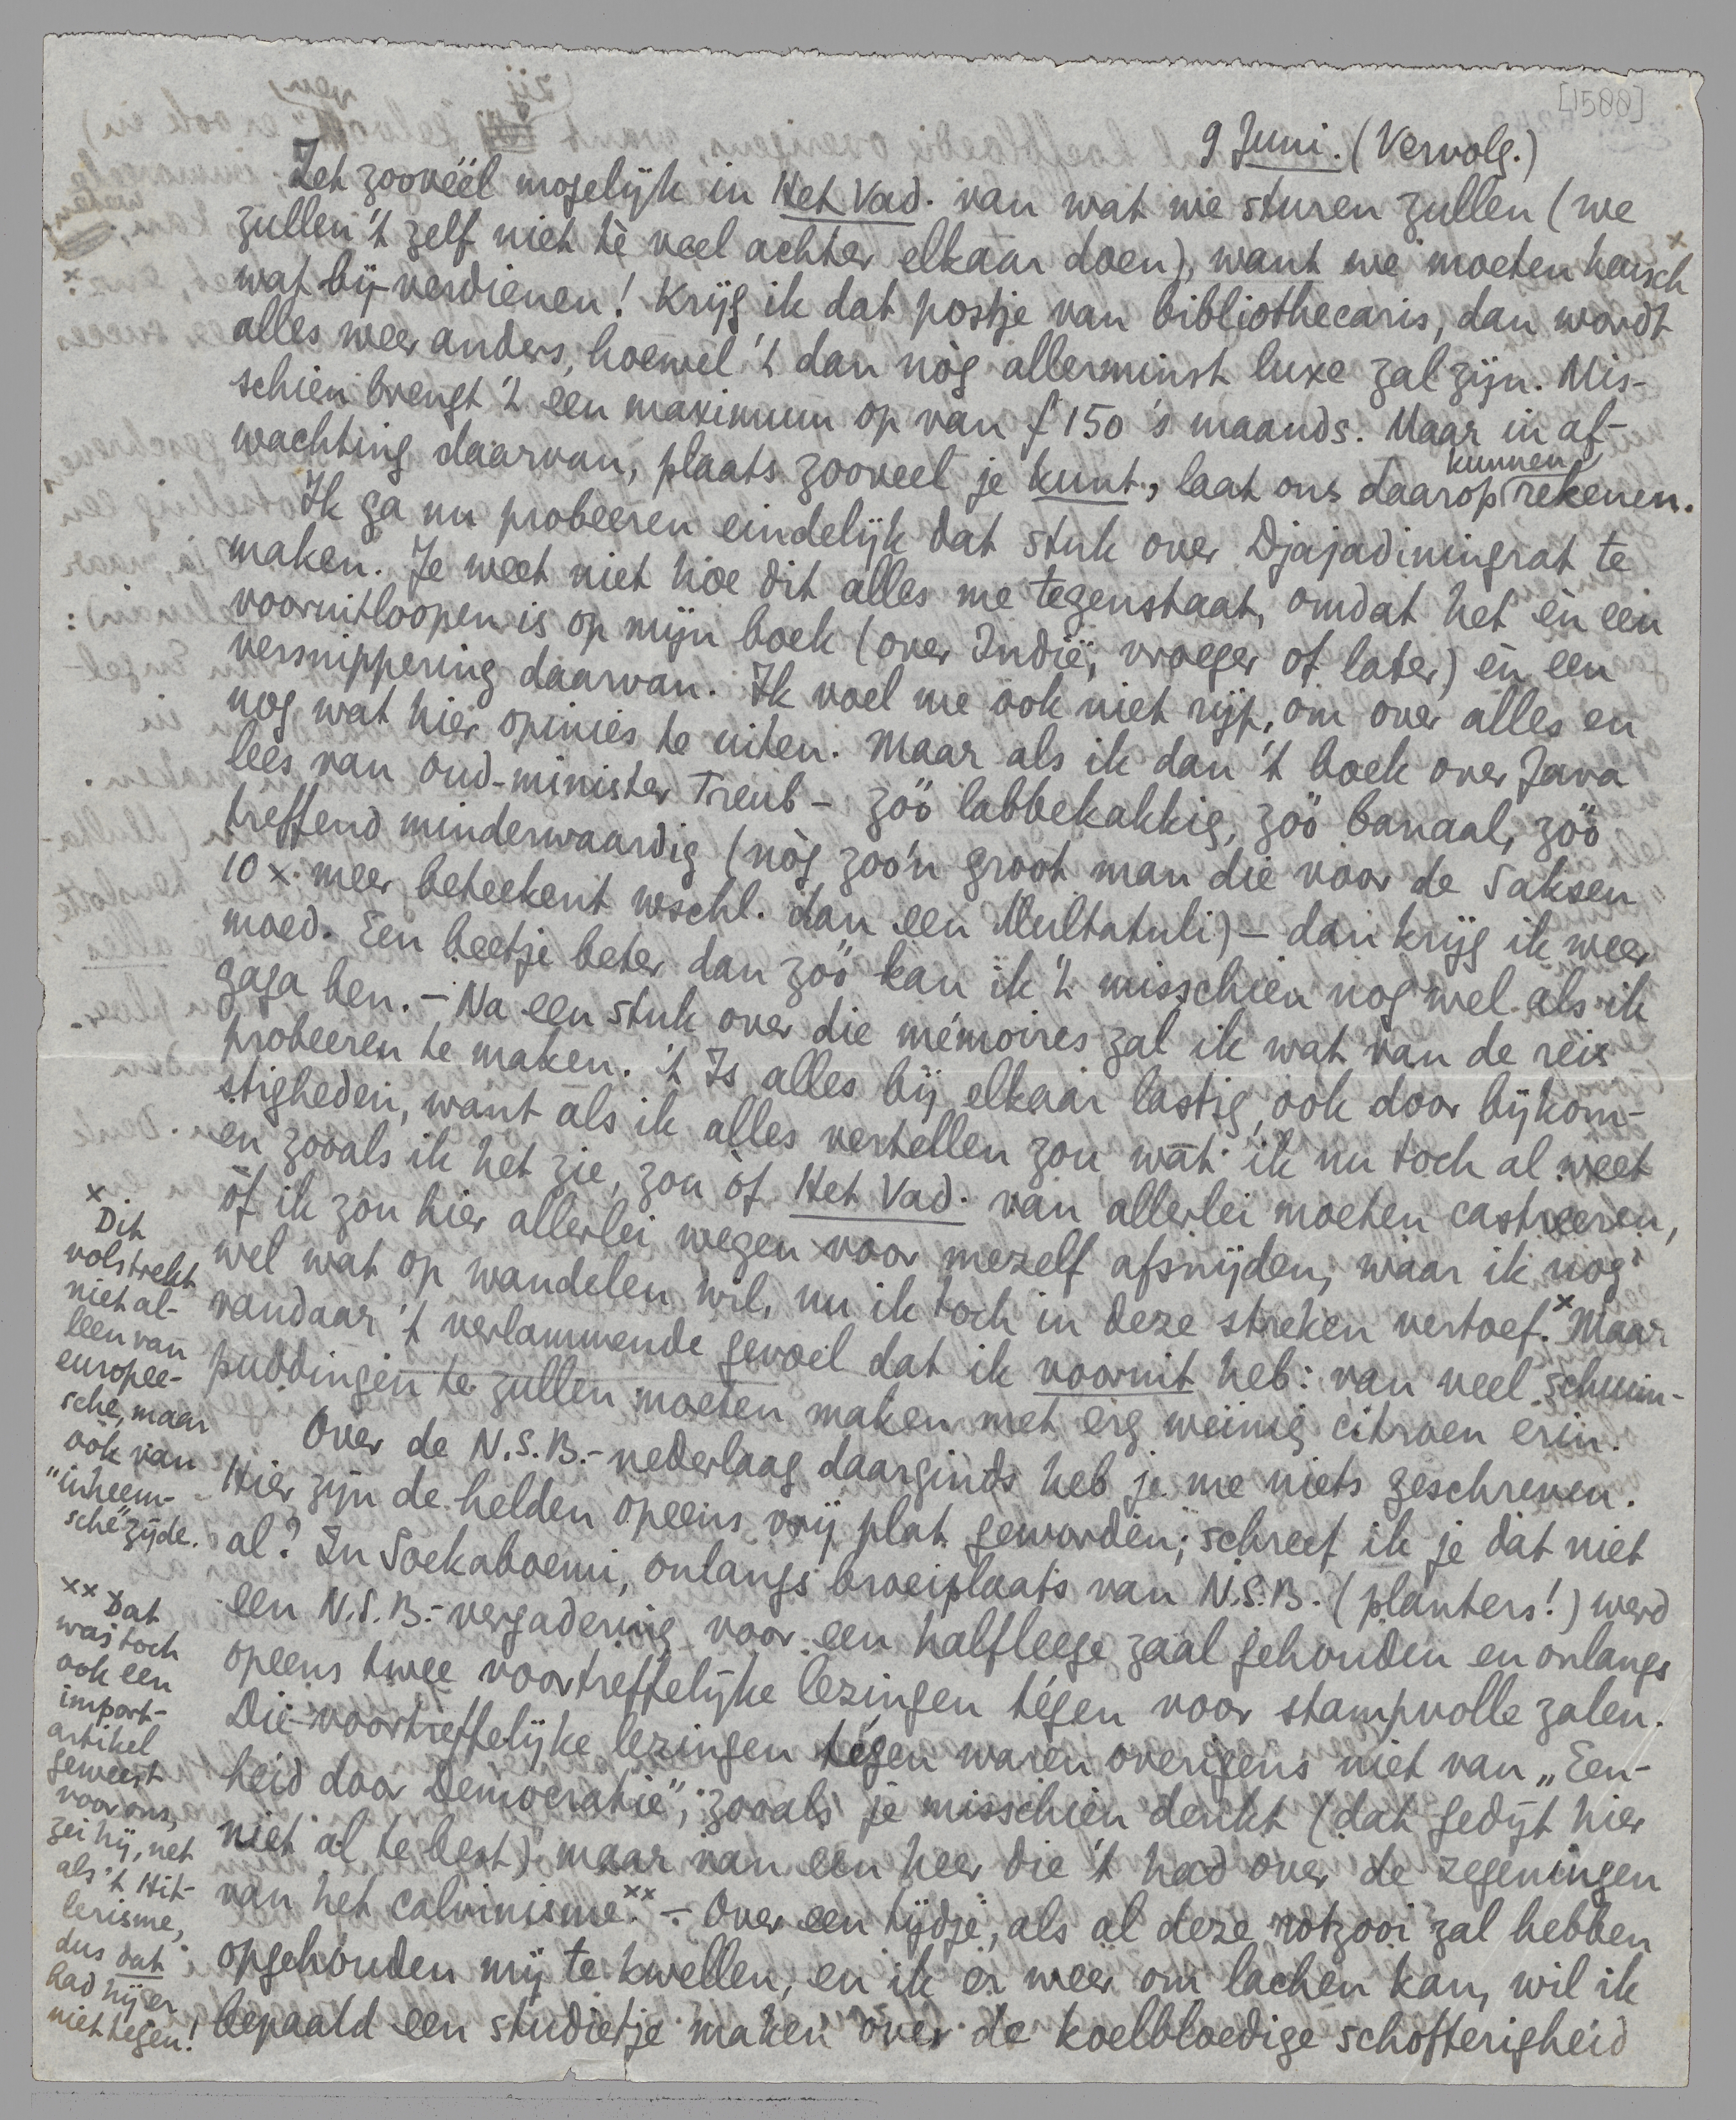 [1500]
9 Juni. (Vervolg.)
Zet zooveel mogelijk in Het Vad. van wat we sturen zullen (we
zullen 't zelf niet tè veel achter elkaar doen), want we moeten heusch
wat bij-verdienen! Krijg ik dat postje van bibliothecaris, dan wordt
alles weer anders, hoewel 't dan nòg allerminst luxe zal zijn. Mis-
schien brengt 't een maximum op van f 150 's maands. Maar in af-
wachting daarvan, plaats zooveel je kunt, laat ons daarop kunnen rekenen.
Ik ga nu probeeren eindelijk dat stuk over Djajadiningrat te
maken. Je weet niet hoe dit alles me tegenstaat, omdat het èn een
vooruitloopen is op mijn boek (over Indië, vroeger of later) èn een
versnippering daarvan. Ik voel me ook niet rijp, om over alles en
nog wat hier opinies te uiten. Maar als ik dan 't boek over Java
lees van oud-minister Treub – zóó labbekakkig, zóó banaal, zóó
treffend minderwaardig (nòg zoo'n groot man die voor de Saksen
10 x meer beteekent wschl. dan een Multatuli) – dan krijg ik weer
moed. Een beetje beter dan zóó kan ik 't misschien nog wel als ik
gaga ben. – Na een stuk over die mémoires zal ik wat van de reis
probeeren te maken. 't Is alles bij elkaar lastig, ook door bijkom-
stigheden, want als ik alles vertellen zou wat ik nu toch al weet
en zooals ik het zie, zou òf Het Vad. van allerlei moeten castreeren,
òf ik zou hier allerlei wegen voor mezelf afsnijden, waar ik nog
wel wat op wandelen wil, nu ik toch in deze streken vertoef.x Maar
vandaar 't verlammende gevoel dat ik vooruit heb: van veel schuim-
puddingen te zullen moeten maken met erg weinig citroen erin.
Over de N.S.B.-nederlaag daarginds heb je me niets geschreven.
Hier zijn de helden opeens vrij plat geworden; schreef ik je dat niet
al? In Soekaboemi, onlangs broeiplaats van N.S.B. (planters!) werd
een N.S.B.-vergadering voor een halfleege zaal gehouden en onlangs
opeens twee voortreffelijke lezingen tégen voor stampvolle zalen.
Die voortreffelijke lezingen tégen waren overigens niet van „Een-
heid door Democratie", zooals je misschien denkt (dat gedijt hier
niet al te best) maar van een heer die 't had over de zegeningen
van het calvinisme.xx – Over een tijdje, als al deze rotzooi zal hebben
opgehouden mij te kwellen, en ik er weer om lachen kan, wil ik
bepaald een studietje maken over de koelbloedige schofterigheid
x Dit
volstrekt
niet al-
leen van
europee-
sche, maar
ook van
"inheem-
sche" zijde.
xx Dat
was toch
ook een
import-
artikel
geweest
voor ons,
zei hij, net
als 't Hit-
lerisme,
dus dat
had hij er
niet tegen!